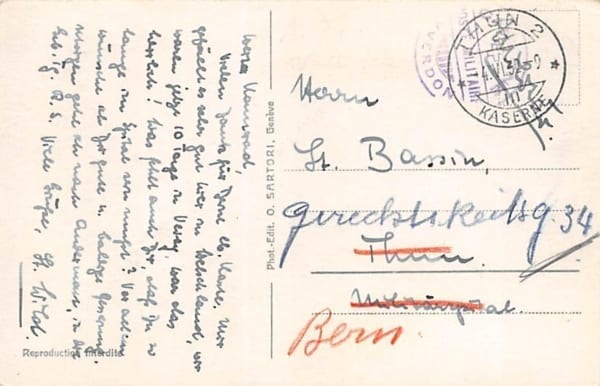 Lieber Kamerad,
Vielen Dank für Deine lb. Karte. Mir
gefällt es sehr gut hier im Welschland, wir
waren jetzt 10 Tage in Vevey, war das
herrlich! Was fehlt auch Dir, daß Du so
lange im Spital sein mußt? Vor allem
wünsche ich Dir gute u. baldige Genesung.
Morgen geht es nach Andermatt, in die
Geb. R. S. Viele Grüße,
Reproduction interdite
Phot.-Edit. O. SARTORI, Genève
YVERDON
MILITAIRE
THUN 2
KASERNE
Herrn
St. Bassin,
Gerechtskeitsg. 34
Thun.
Militärspital.
Bern